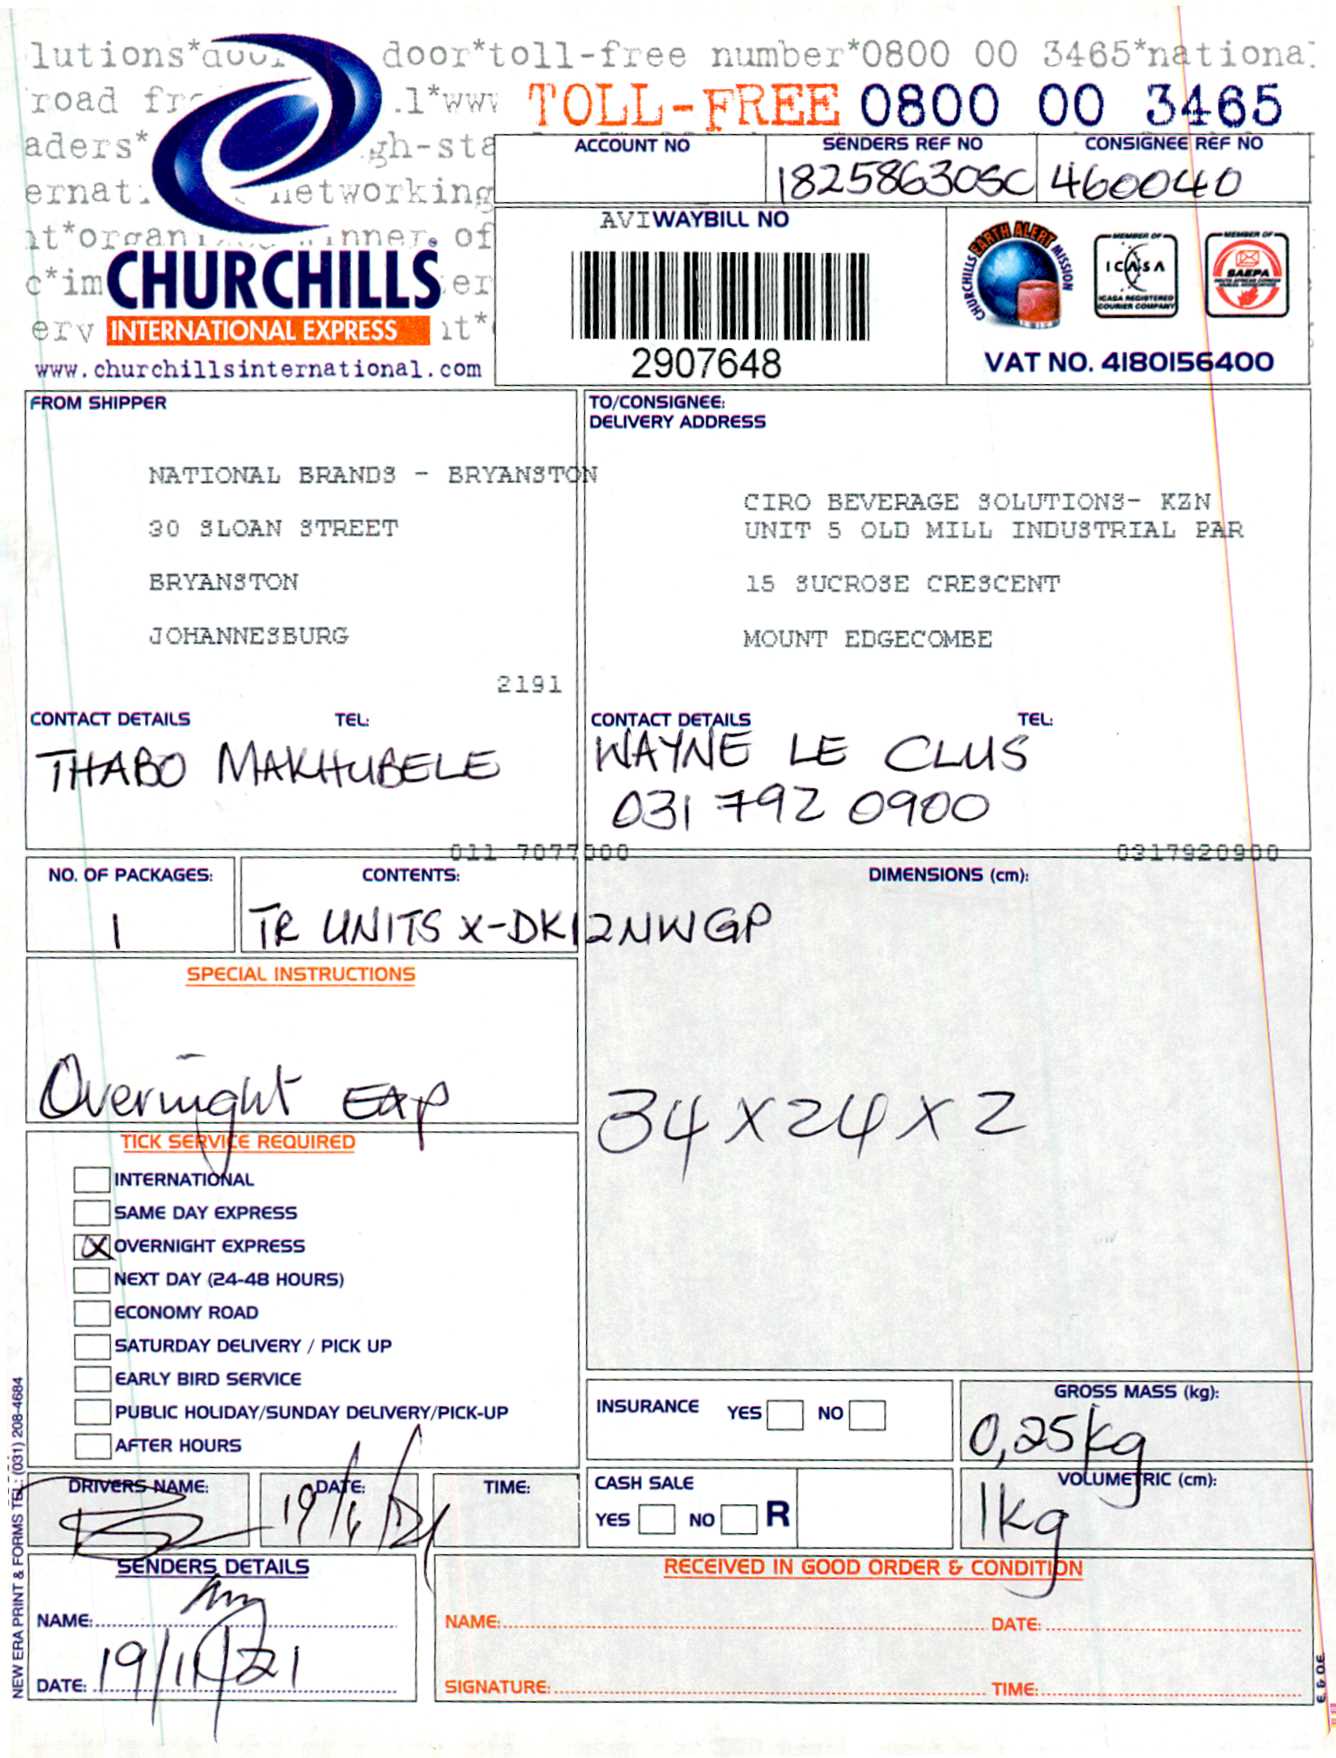 lutions*door door*toll-free number*0800 00 3465*national
road fr .l*www
TOLL-FREE 0800 00 3465
aders* gh-sta
ACCOUNT NO
SENDERS REF NO
CONSIGNEE REF NO
18258630SC
460040
ernat networking
nt*organi winner. of
AVIWAYBILL NO
c*im er
CHURCHILLS
INTERNATIONAL EXPRESS
erv nt*
www.churchillsinternational.com
2907648
CHURCHILLS EARTH ALERT MISSION
MEMBER OF
ICASA
ICASA REGISTERED
COURIER COMPANY
MEMBER OF
SAEPA
VAT NO. 4180156400
FROM SHIPPER
NATIONAL BRANDS - BRYANSTON
30 SLOAN STREET
BRYANSTON
JOHANNESBURG
2191
TO/CONSIGNEE:
DELIVERY ADDRESS
CIRO BEVERAGE SOLUTIONS- KZN
UNIT 5 OLD MILL INDUSTRIAL PAR
15 SUCROSE CRESCENT
MOUNT EDGECOMBE
CONTACT DETAILS TEL:
THABO MAKHUBELE
011 7077000
CONTACT DETAILS TEL:
WAYNE LE CLUS
031 792 0900
0317920900
NO. OF PACKAGES:
1
CONTENTS:
TR UNITS X-DK12NWGP
DIMENSIONS (cm):
34 x 24 x 2
SPECIAL INSTRUCTIONS
Overnight Exp
TICK SERVICE REQUIRED
INTERNATIONAL
SAME DAY EXPRESS
X OVERNIGHT EXPRESS
NEXT DAY (24-48 HOURS)
ECONOMY ROAD
SATURDAY DELIVERY / PICK UP
EARLY BIRD SERVICE
PUBLIC HOLIDAY/SUNDAY DELIVERY/PICK-UP
AFTER HOURS
INSURANCE YES NO
GROSS MASS (kg):
0,25kg
DRIVERS NAME:
DATE:
19/11/21
TIME:
CASH SALE
YES NO R
VOLUMETRIC (cm):
1kg
SENDERS DETAILS
NAME:
DATE: 19/11/21
RECEIVED IN GOOD ORDER & CONDITION
NAME: DATE:
SIGNATURE: TIME:
NEW ERA PRINT & FORMS TEL: (031) 208-4684
E & O E